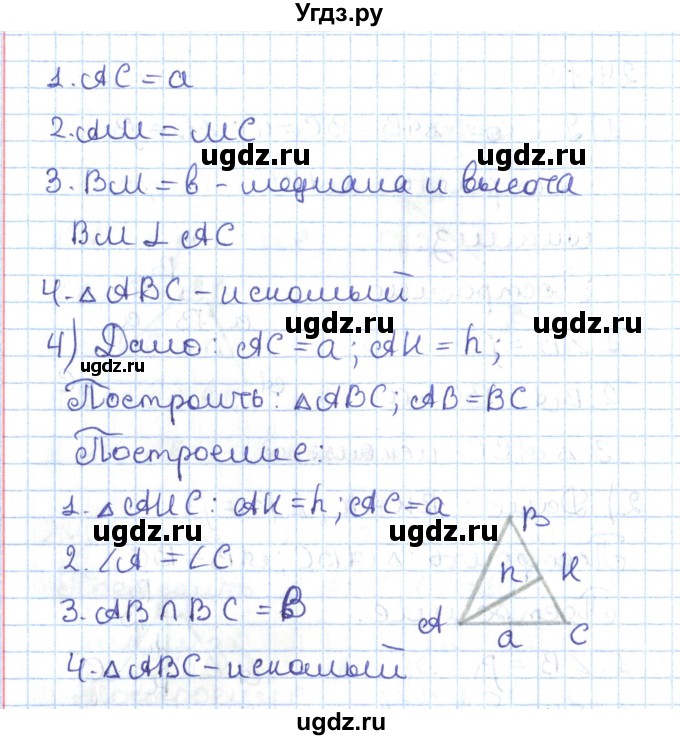 Угдз.ру
1. AC = a
2. AM = MC
ugdz.ru ugdz.ru
3. BM = в - медиана и высота
BM ⊥ AC
4. △ABC - искомый
ugdz.ru ugdz.ru
4) Дано: AC = a; AH = h;
ugdz.ru
Построить: △ABC; AB = BC
Построение:
ugdz.ru
1. △AHC: AH = h; AC = a
ugdz.ru ugdz.ru
2. ∠A = ∠C
3. AB ∩ BC = B
4. △ABC - искомый
B
h H
A a C
ugdz.ru ugdz.ru
ugdz.ru